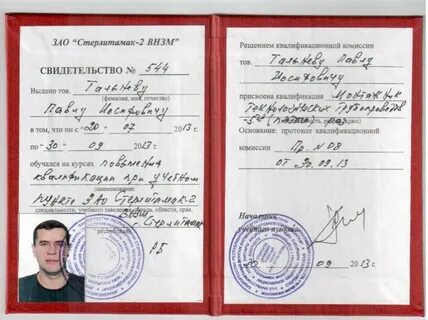 ЗАО "Стерлитамак-2 ВНЗМ"
СВИДЕТЕЛЬСТВО № 544
Выдано тов. Тальневу
(фамилия, имя, отчество)
Павлу Иосифовичу
в том, что он с "20" 07 2013 г.
по "30" 09 2013 г.
обучался на курсах повышения
квалификации при учебном
(наименование)
пункте ЗАО Стерлитамак-2
специальность, учебного заведения, области, края,
ВНЗМ г. Стерлитамак
республики)
РБ
Решением квалификационной комиссии
тов. Тальневу Павлу
Иосифовичу
присвоена квалификация Монтажник
технологических трубопроводов
разр.
Основание: протокол квалификационной
комиссии Пр. № 08
от 30.09.13
Начальник
учебного пункта
09 2013 г.